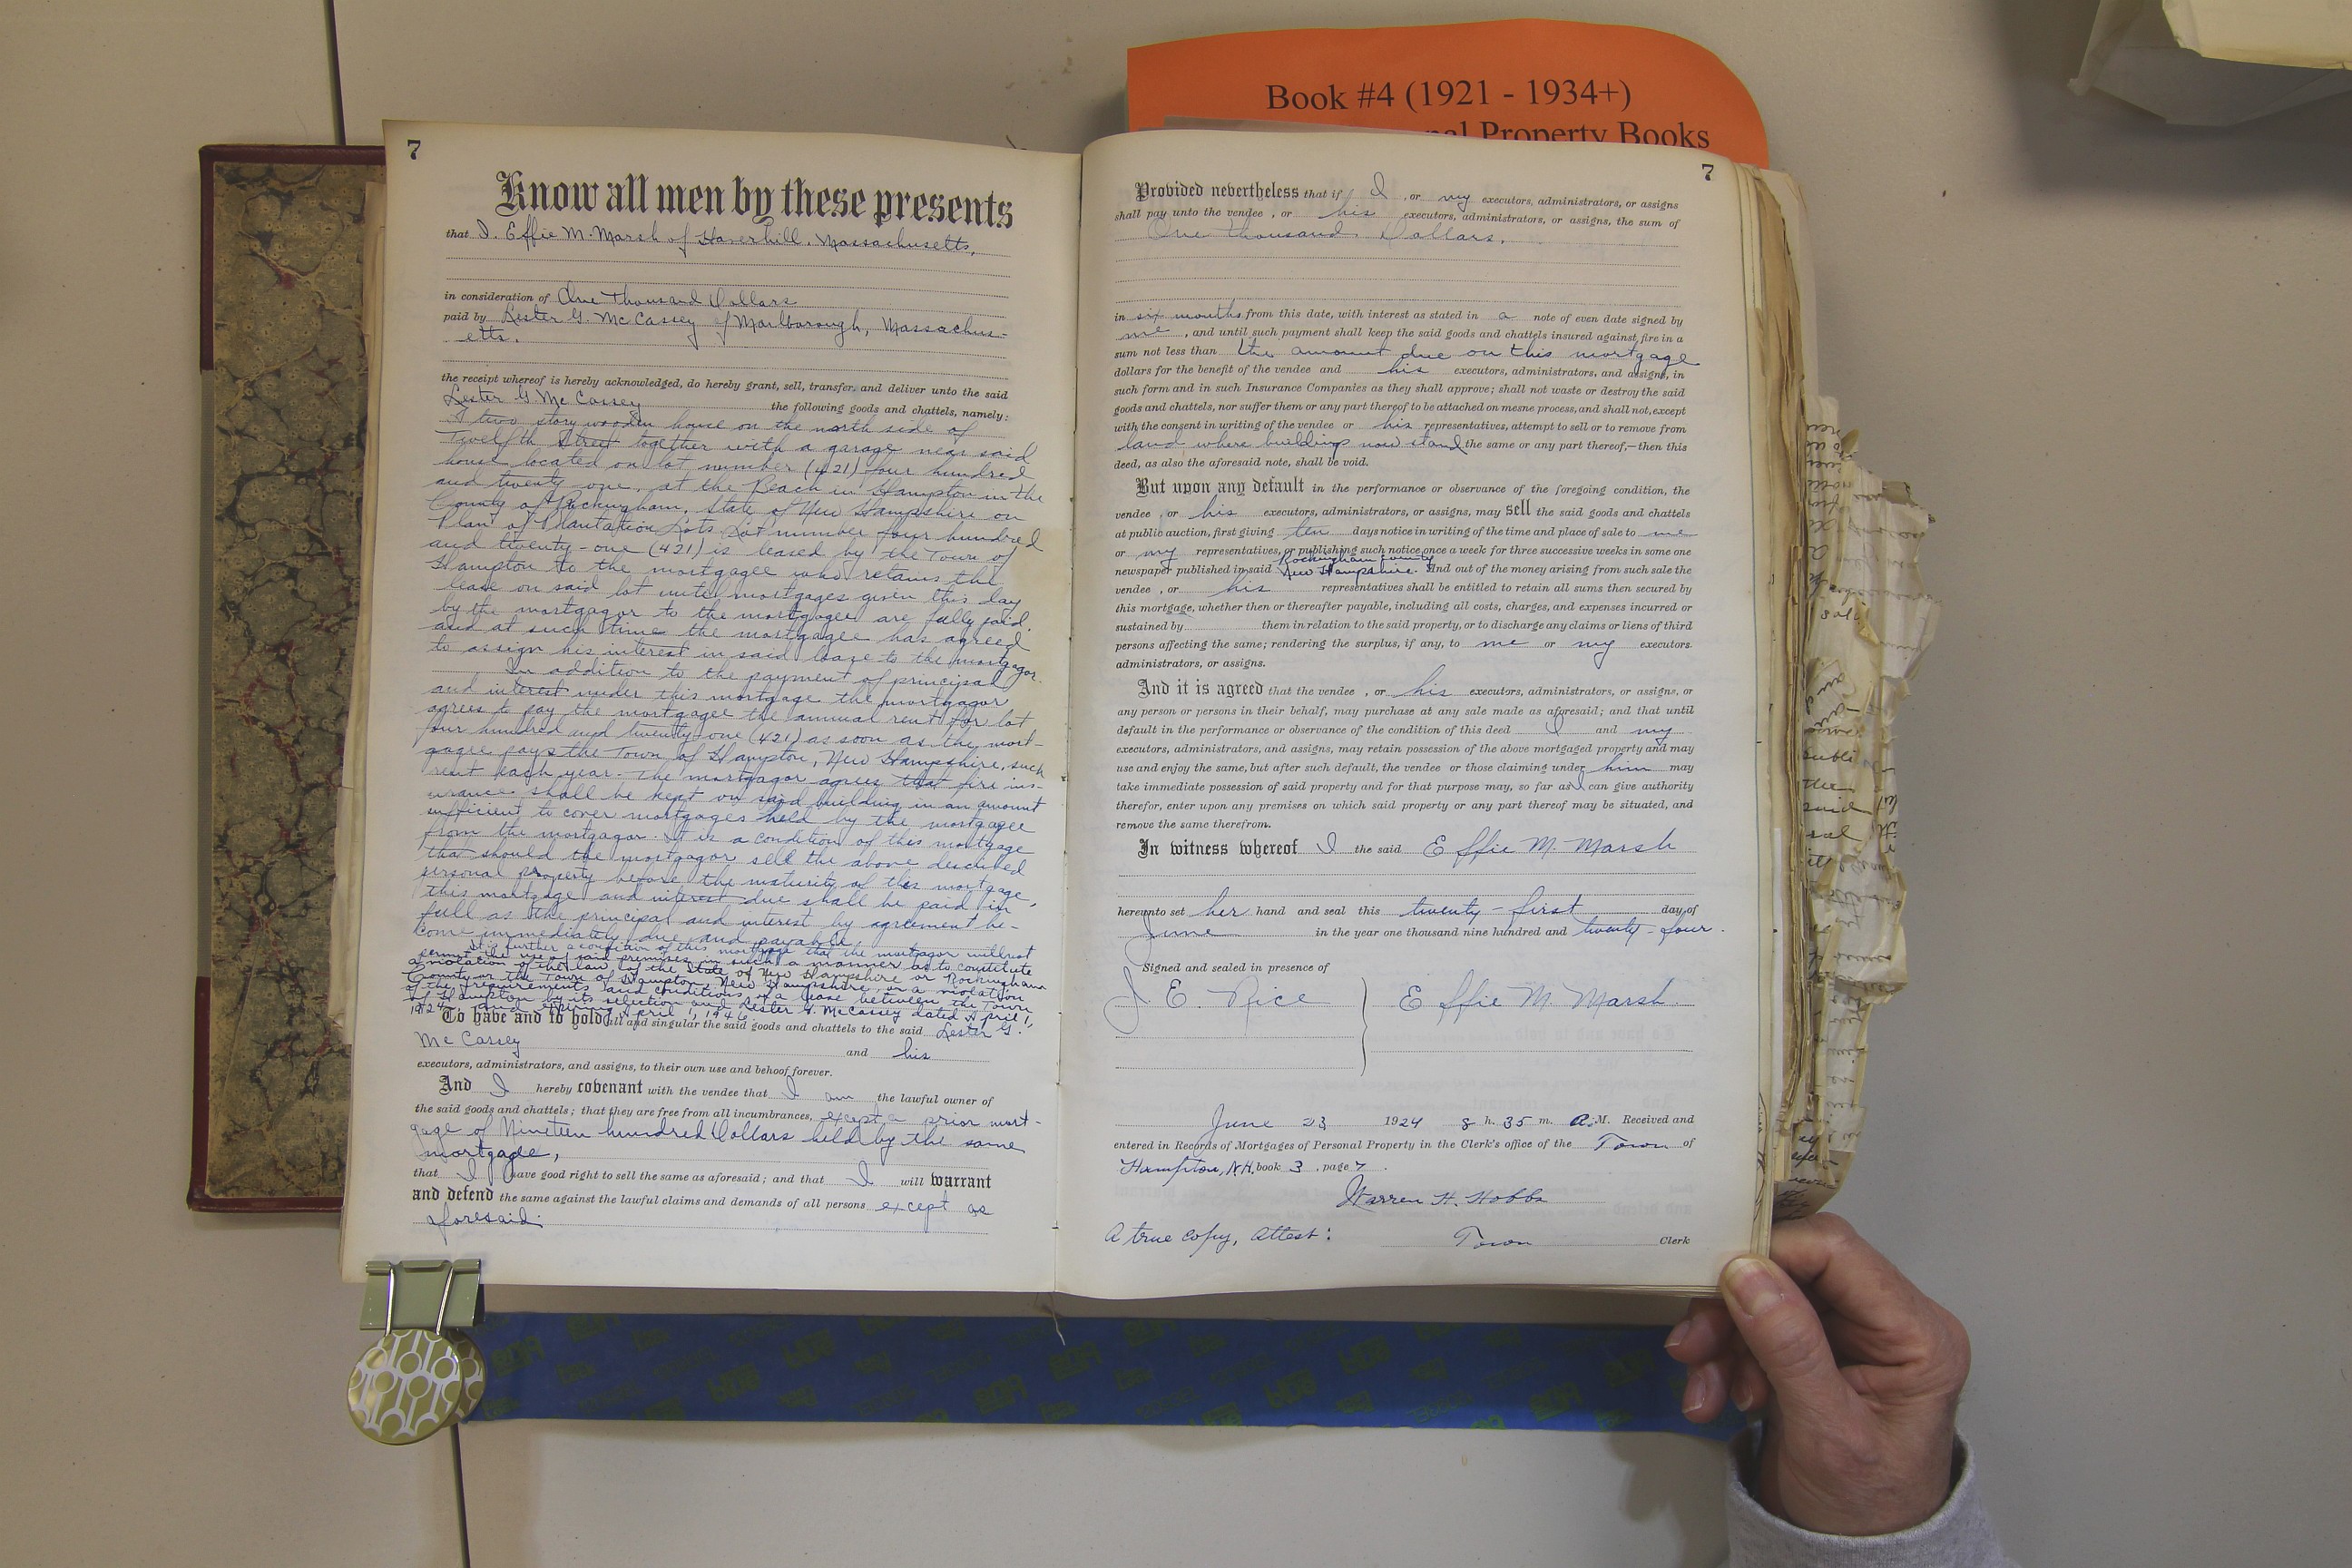 Book #4 (1921 - 1934+)
Property Books
7
Know all men by these presents
that I, Effie M. Marsh of Haverhill, Massachusetts,
in consideration of One Thousand Dollars
paid by Lester G. McCassey of Marlborough, Massachus-
etts.
the receipt whereof is hereby acknowledged, do hereby grant, sell, transfer, and deliver unto the said
Lester G McCassey the following goods and chattels, namely:
A two story wooden house on the north side of
Twelfth Street together with a garage near said
house located on lot number (421) four hundred
and twenty-one, at the Beach in Hampton in the
County of Rockingham, State of New Hampshire on
Plan of Plantation Lots. Lot number four hundred
and twenty-one (421) is leased by the Town of
Hampton to the mortgagee who retains the
lease on said lot until mortgages given this day
by the mortgagor to the mortgagee are fully paid.
and at such time the mortgagee has agreed
to assign his interest in said lease to the mortgagor.
In addition to the payment of principal
and interest under this mortgage the mortgagor
agrees to pay the mortgagee the annual rent for lot
four hundred and twenty-one (421) as soon as the mort-
gagee pays the Town of Hampton, New Hampshire, such
rent each year. The mortgagor agrees that fire ins-
urance shall be kept on said building in an amount
sufficient to cover mortgages held by the mortgagee
from the mortgagor. It is a condition of this mortgage
that should the mortgagor sell the above described
personal property before the maturity of this mortgage,
this mortgage and interest due shall be paid in
full as the principal and interest by agreement be-
come immediately due and payable.
It is further a condition of this mortgage that the mortgagor will not
permit the use of said premises in such a manner as to constitute
a violation of the law of the State of New Hampshire or Rockingham
County or the Town of Hampton, New Hampshire, or a violation
of the requirements and conditions of a lease between the Town
of Hampton by its selectmen and Lester G. McCassey dated April 1,
1924 and expiring April 1, 1946.
To have and to hold all and singular the said goods and chattels to the said Lester G.
McCassey and his
executors, administrators, and assigns, to their own use and behoof forever.
And I hereby covenant with the vendee that I am the lawful owner of
the said goods and chattels; that they are free from all incumbrances, except a prior mort-
gage of Nineteen hundred Dollars held by the same
mortgagee,
that I have good right to sell the same as aforesaid; and that I will warrant
and defend the same against the lawful claims and demands of all persons except as
aforesaid.
7
Provided nevertheless that if I, or my executors, administrators, or assigns
shall pay unto the vendee, or his executors, administrators, or assigns, the sum of
One thousand Dollars.
in six months from this date, with interest as stated in a note of even date signed by
me, and until such payment shall keep the said goods and chattels insured against fire in a
sum not less than the amount due on this mortgage
dollars for the benefit of the vendee and his executors, administrators, and assigns, in
such form and in such Insurance Companies as they shall approve; shall not waste or destroy the said
goods and chattels, nor suffer them or any part thereof to be attached on mesne process, and shall not, except
with the consent in writing of the vendee or his representatives, attempt to sell or to remove from
land where buildings now stand the same or any part thereof,—then this
deed, as also the aforesaid note, shall be void.
But upon any default in the performance or observance of the foregoing condition, the
vendee, or his executors, administrators, or assigns, may sell the said goods and chattels
at public auction, first giving ten days notice in writing of the time and place of sale to me
or my representatives, or publishing such notice once a week for three successive weeks in some one
newspaper published in said Rockingham County New Hampshire. And out of the money arising from such sale the
vendee, or his representatives shall be entitled to retain all sums then secured by
this mortgage, whether then or thereafter payable, including all costs, charges, and expenses incurred or
sustained by them in relation to the said property, or to discharge any claims or liens of third
persons affecting the same; rendering the surplus, if any, to me or my executors
administrators, or assigns.
And it is agreed that the vendee, or his executors, administrators, or assigns, or
any person or persons in their behalf, may purchase at any sale made as aforesaid; and that until
default in the performance or observance of the condition of this deed I and my
executors, administrators, and assigns, may retain possession of the above mortgaged property and may
use and enjoy the same, but after such default, the vendee or those claiming under him may
take immediate possession of said property and for that purpose may, so far as I can give authority
therefor, enter upon any premises on which said property or any part thereof may be situated, and
remove the same therefrom.
In witness whereof I the said Effie M. Marsh
hereunto set her hand and seal this twenty-first day of
June in the year one thousand nine hundred and twenty-four.
Signed and sealed in presence of
J. E. Rice Effie M. Marsh.
June 23 1924 8 h. 35 m. A.M. Received and
entered in Records of Mortgages of Personal Property in the Clerk's office of the Town of
Hampton, N.H. book 3, page 7.
Warren H. Hobbs
A true copy, Attest: Town Clerk